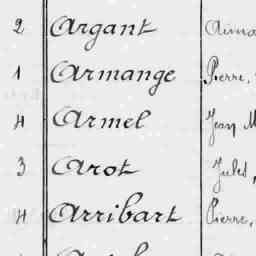 2 Argant
1 Armange Pierre,
4 Armel Jean M
3 Arot Jules,
4 Arribart Pierre,